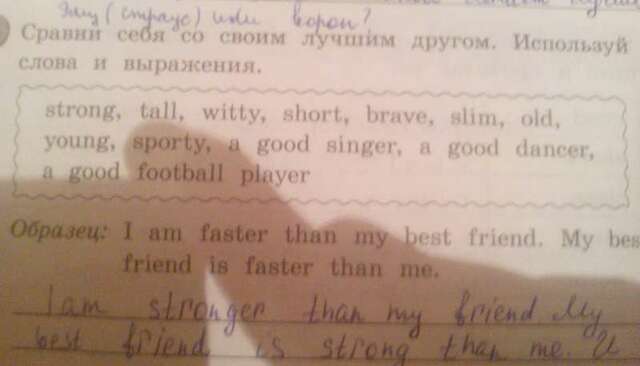 Эму (страус) или ворон?
Сравни себя со своим лучшим другом. Используй
слова и выражения.
strong, tall, witty, short, brave, slim, old,
young, sporty, a good singer, a good dancer,
a good football player
Образец: I am faster than my best friend. My bes
friend is faster than me.
I am stronger than my friend My
best friend is strong than me.